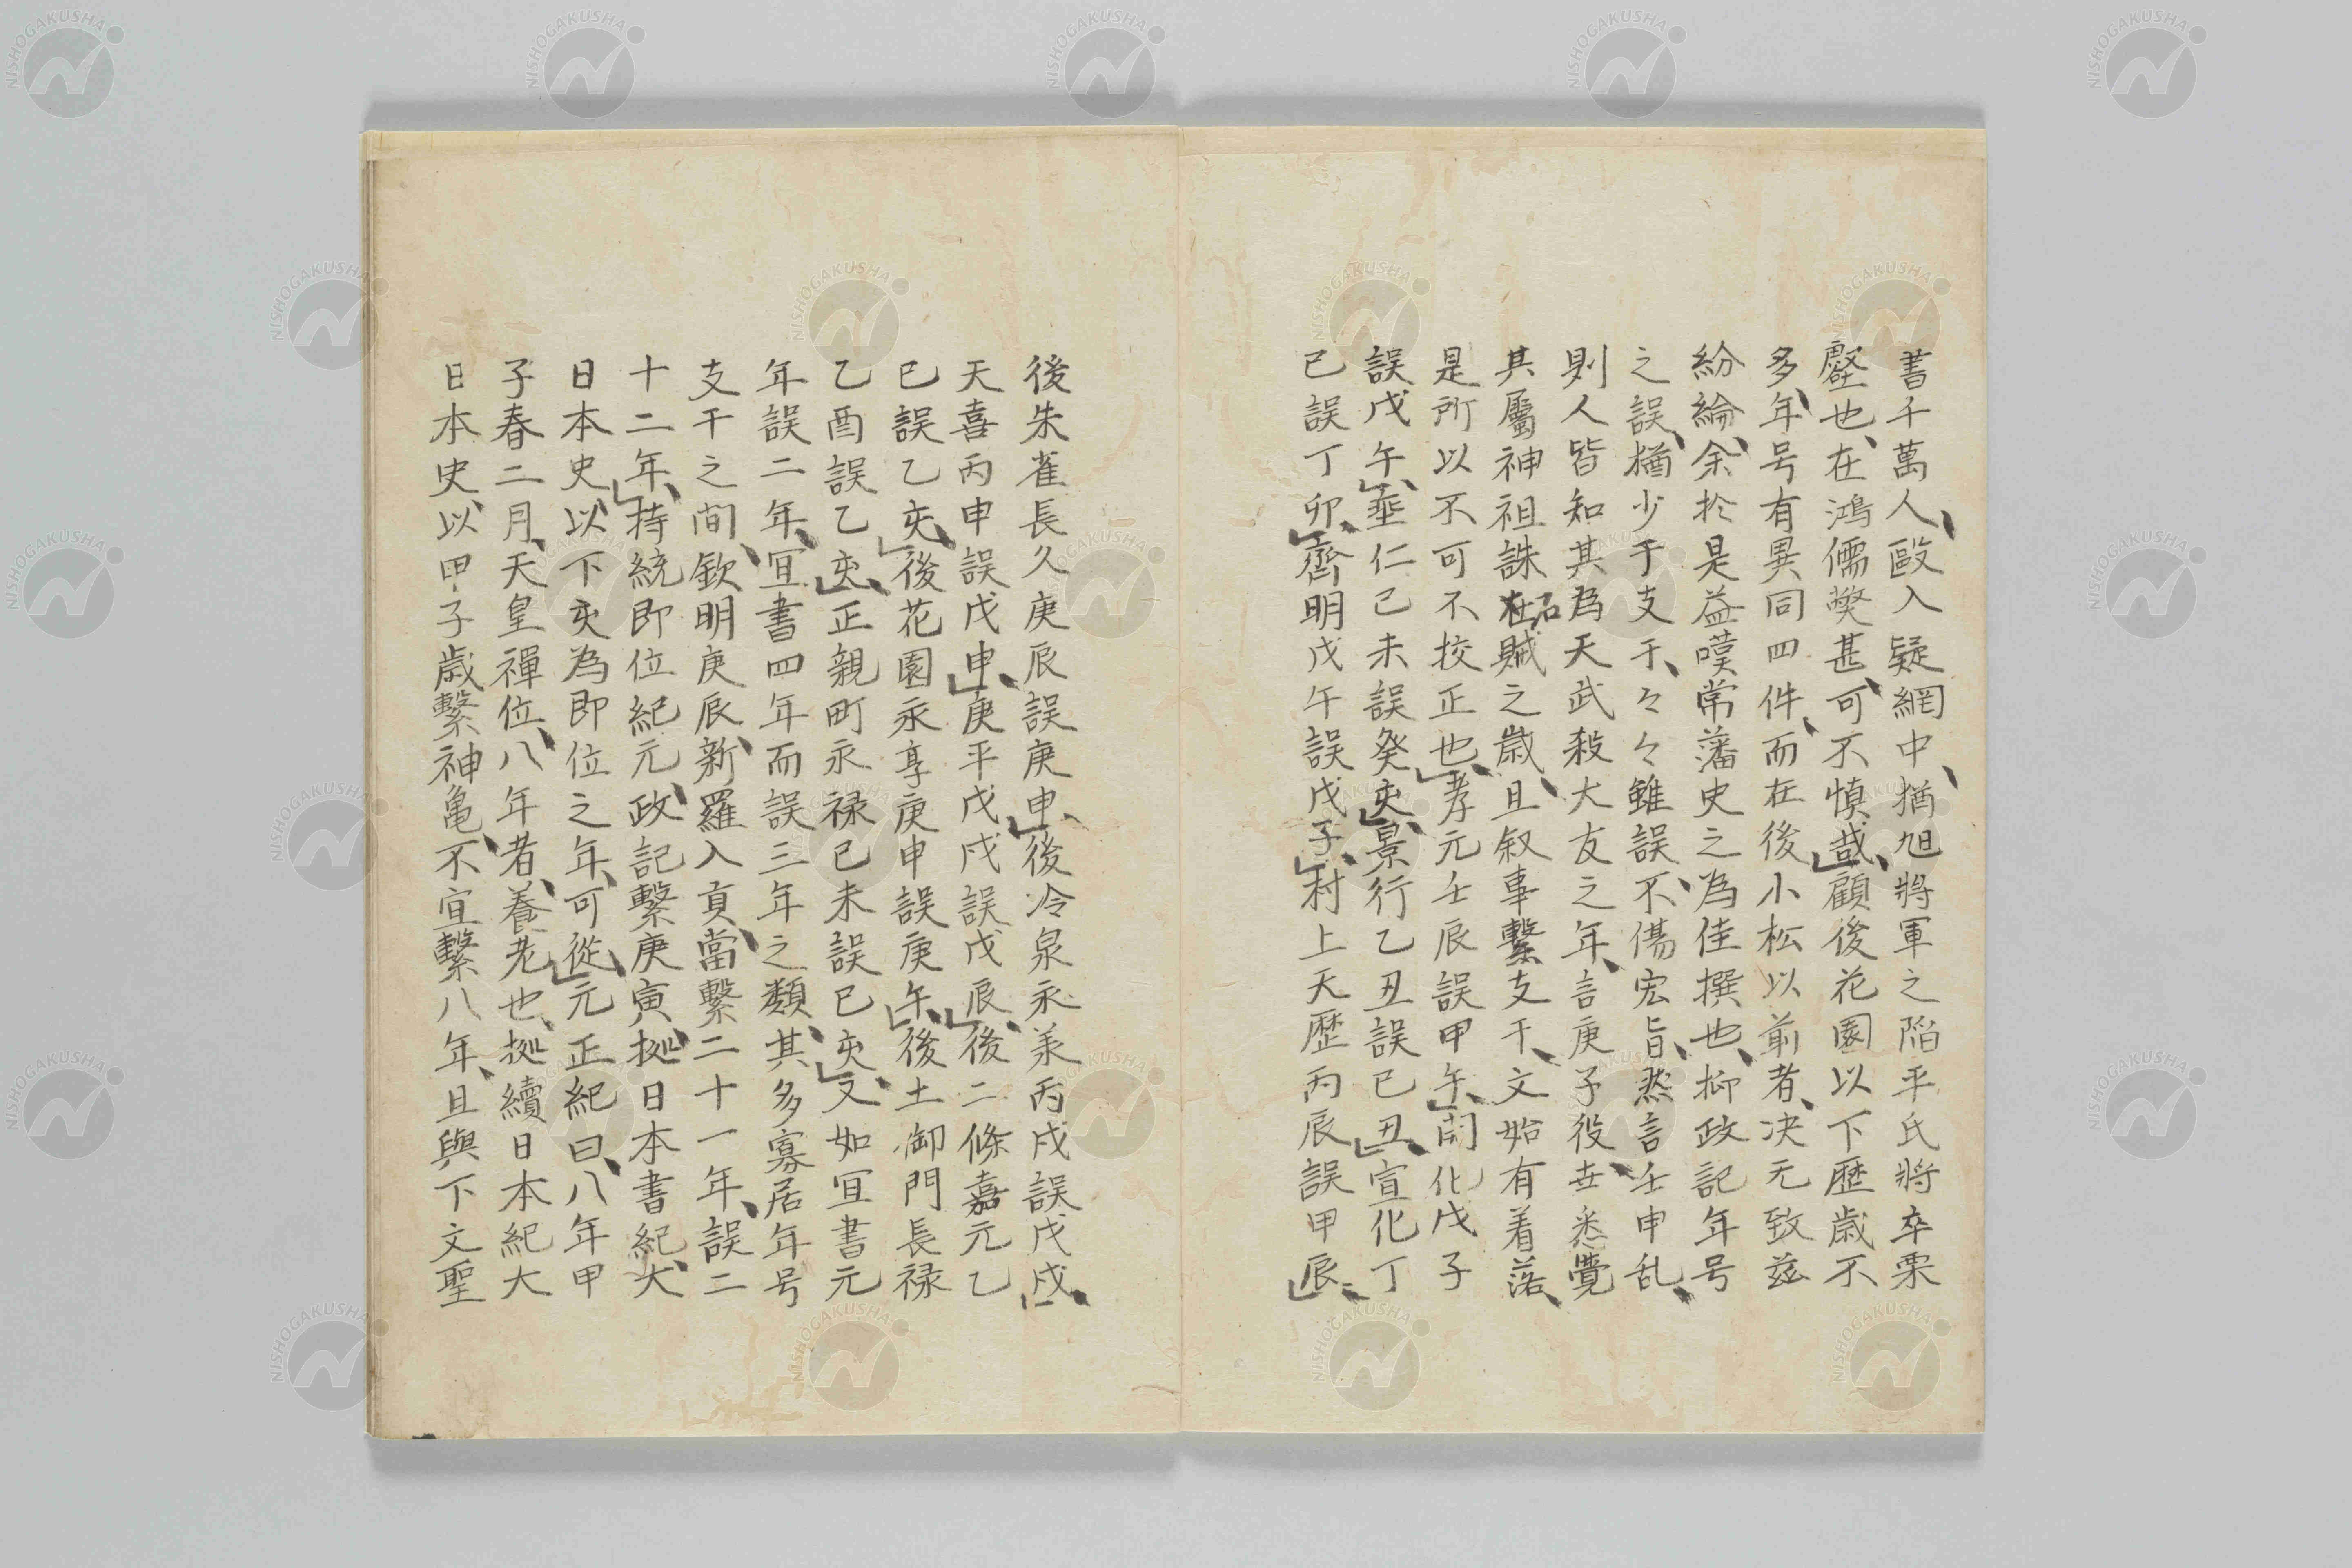 書千萬人、毆入疑網中、猶旭將軍之陷平氏將卒栗
壑也、在鴻儒獘甚、可不慎哉、顧後花園以下歴歳不
多、年号有異同四件、而在後小松以前者、决无致茲
紛綸、余於是益嘆常藩史之為佳撰也、抑政記年号
之誤、猶少于支干、々々雖誤、不傷宏旨、然言壬申乱、
則人皆知其為天武殺大友之年、言庚子役、世悉覺
其屬神祖誅石賊之歳、且叙事繋支干、文始有着落、
是所以不可不挍正也、孝元壬辰誤甲午、開化戊子
誤戊午、垂仁己未誤癸亥、景行乙丑誤已丑、宣化丁
已誤丁卯、齊明戊午誤戊子、村上天歴丙辰誤甲辰、
後朱雀長久庚辰誤庚申、後冷泉永羕丙戌誤戊戌、
天喜丙申誤戊申、庚平戊戌誤戊辰、後二條嘉元乙
已誤乙亥、後花園永享庚申誤庚午、後土御門長禄
乙酉誤乙亥、正親町永禄已未誤已亥、又如宜書元
年誤二年、宜書四年而誤三年之類、其多寡居年号
支干之間、欽明庚辰、新羅入貢、當繋二十一年、誤二
十二年、持統即位紀元、政記繋庚寅、拠日本書紀、大
日本史、以下亥為即位之年、可從、元正紀曰、八年甲
子春二月、天皇禪位、八年者、養老也、拠續日本紀大
日本史、以甲子歳繋神亀、不宜繋八年、且與下文聖